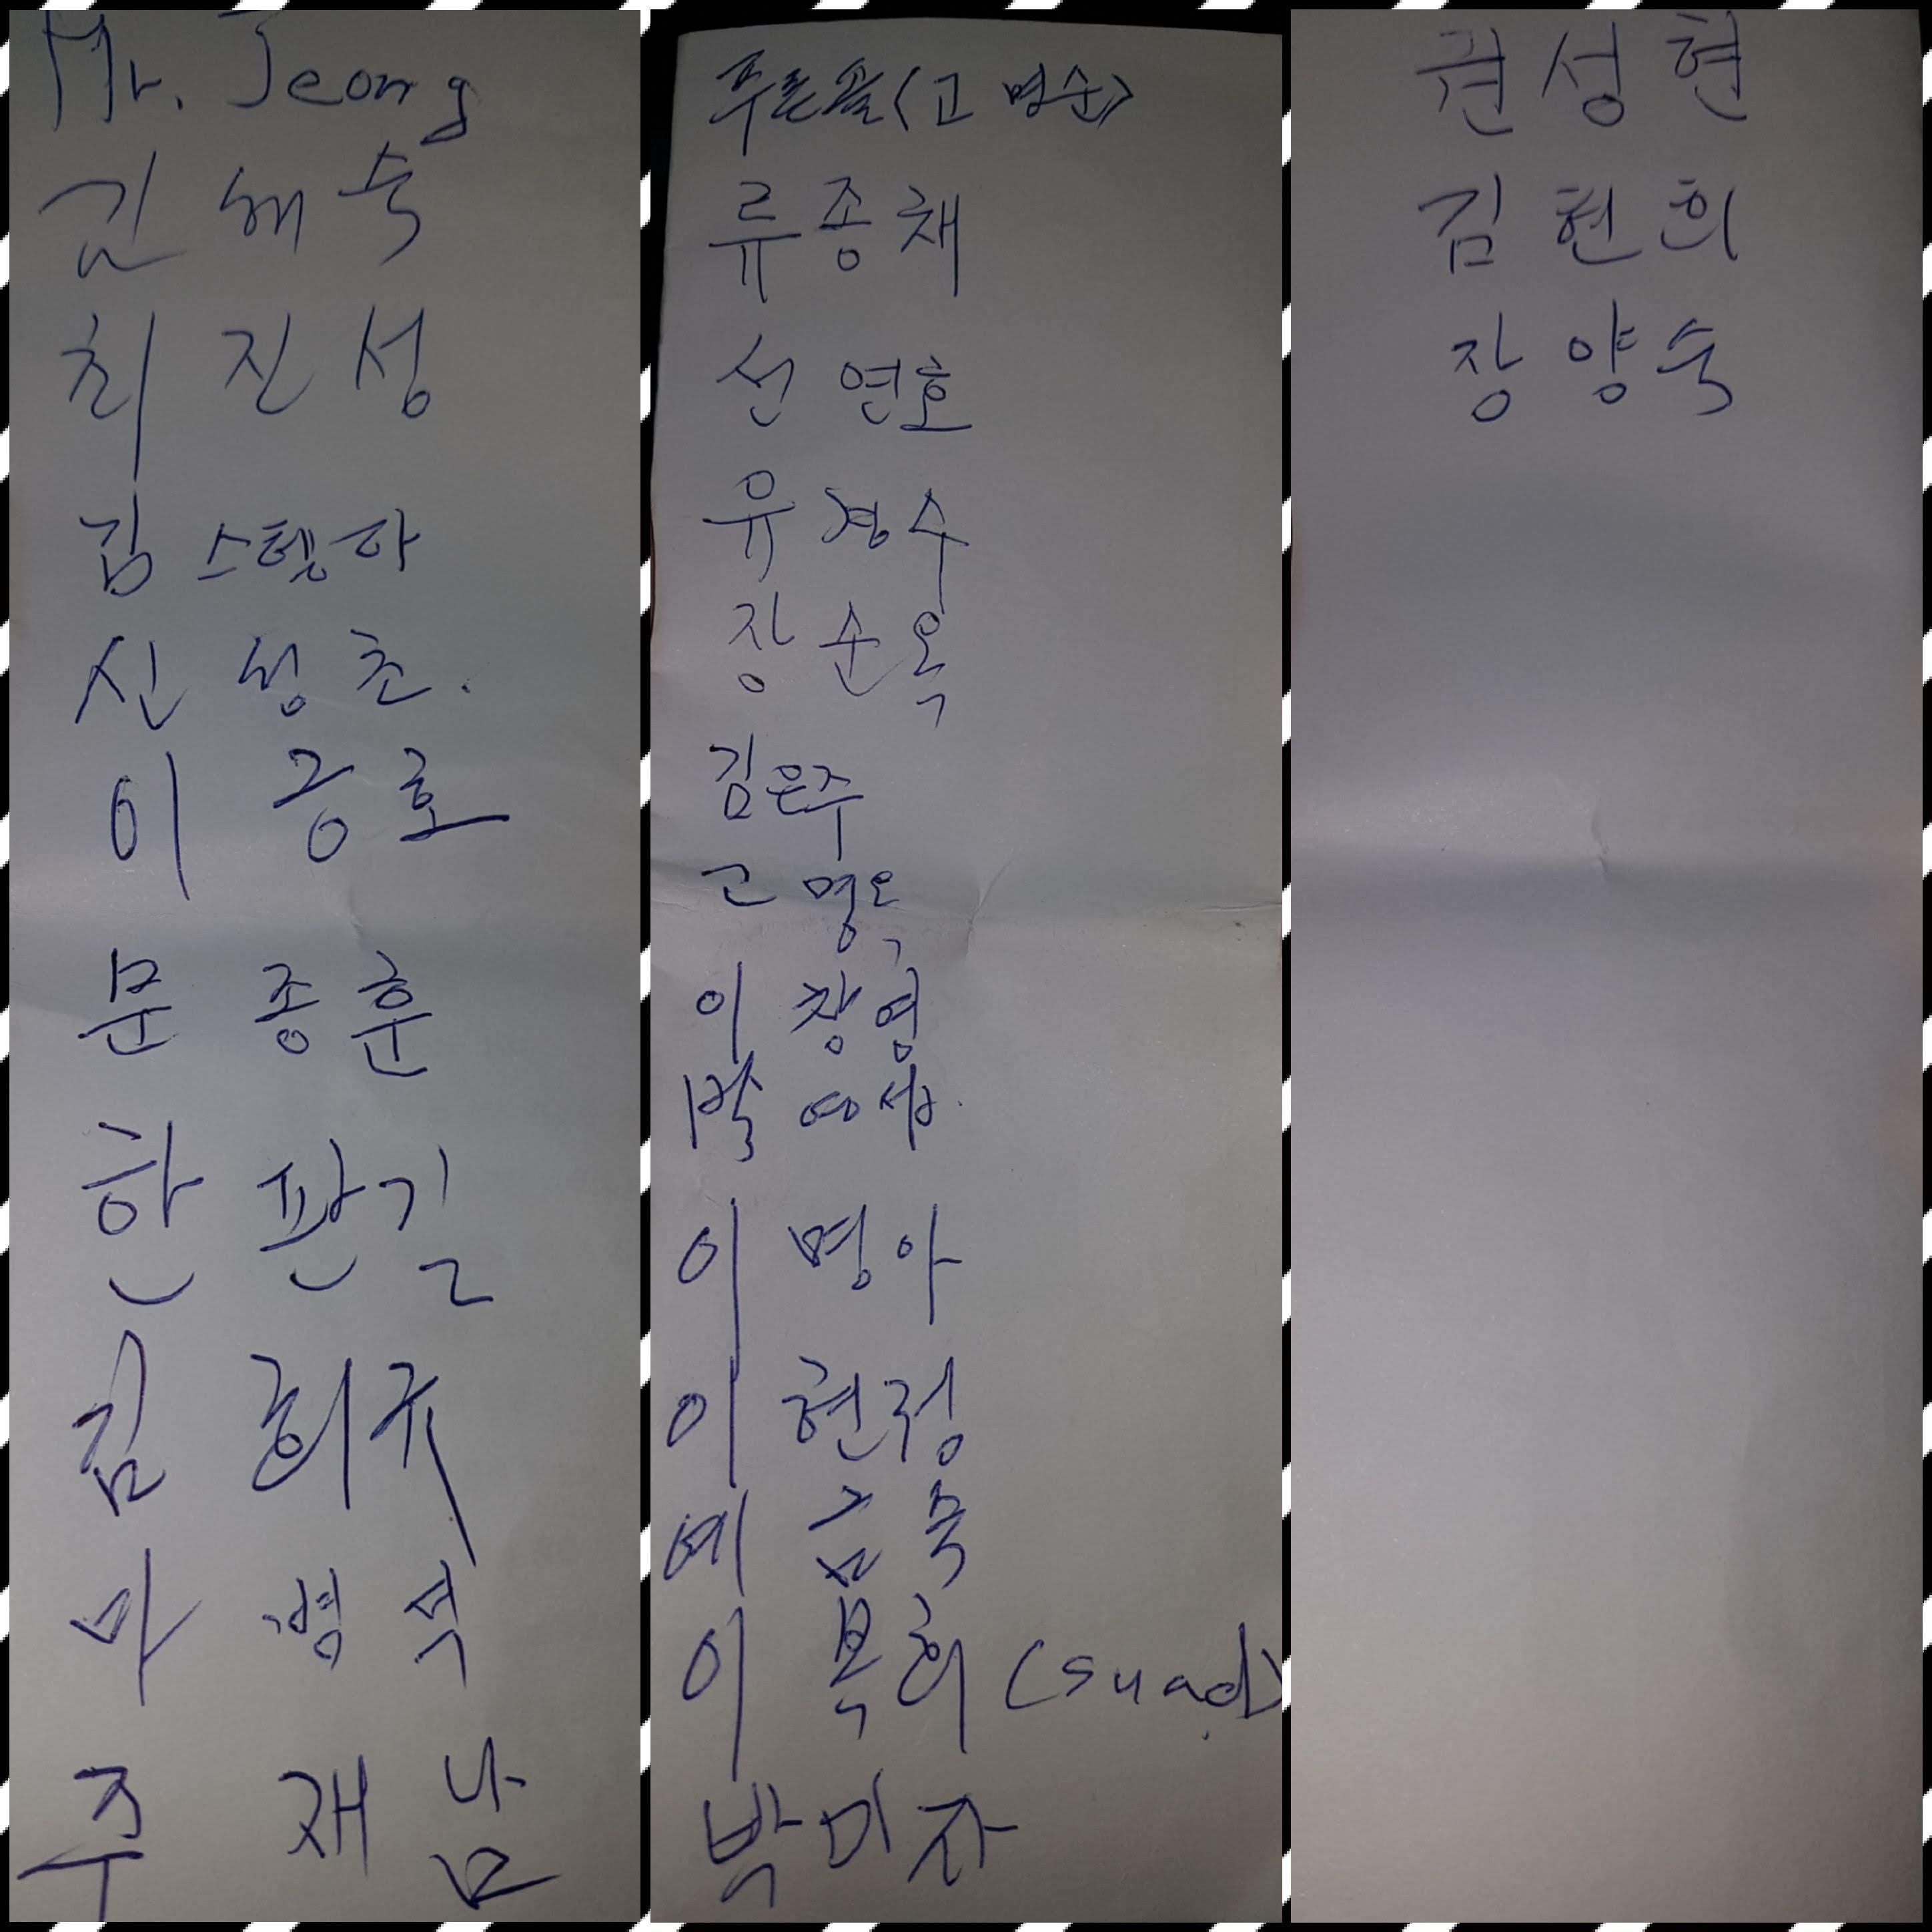 Mr. Jeong
김 해 숙
최 진 성
김 스텔라
신 성 초.
이 긍 호
문 종 훈
한 판 길
김 희 규
마 병 덕
주 재 남
푸른솔〈고 명순〉
류 종 채
선 연호
유 경 수
장 순 옥
김은주
고 명옥
이 창 영
박
이 명 아
이 현정
예 금 숙
이 복희 (suad)
박 미 자
권 성 현
김 현 희
장 양 숙